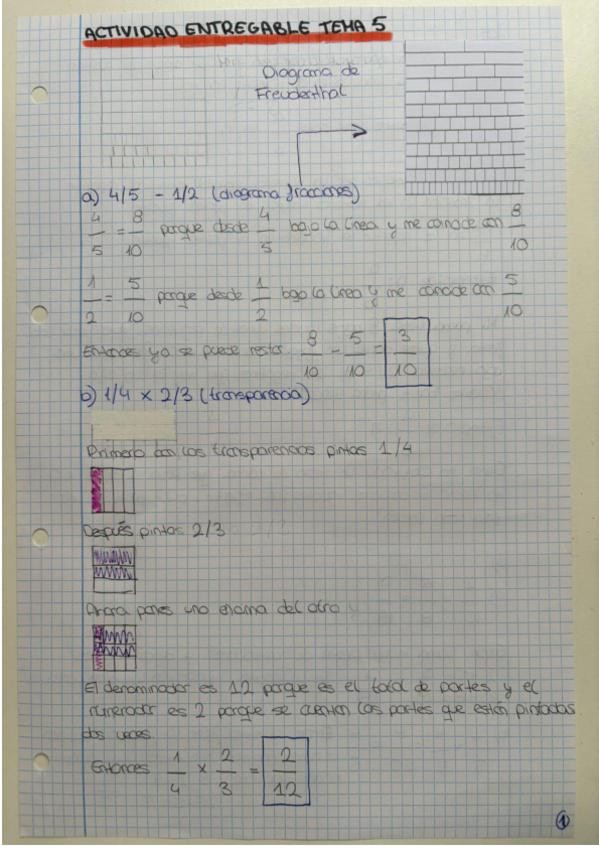 ACTIVIDAD ENTREGABLE TEMA 5
Diagrama de
Freudenthal
a) 4/5 - 1/2 (diagrama fracciones)
4/5 = 8/10 porque desde 4/5 bajo la línea y me coincide con 8/10
1/2 = 5/10 porque desde 1/2 bajo la línea y me coincide con 5/10
Entonces ya se puede restar 8/10 - 5/10 = 3/10
b) 1/4 x 2/3 (transparencia)
Primero con las transparencias pintas 1/4
Después pintas 2/3
Ahora pones uno encima del otro
El denominador es 12 porque es el total de partes y el
numerador es 2 porque se cuentan las partes que están pintadas
dos veces
Entonces 1/4 x 2/3 = 2/12
1